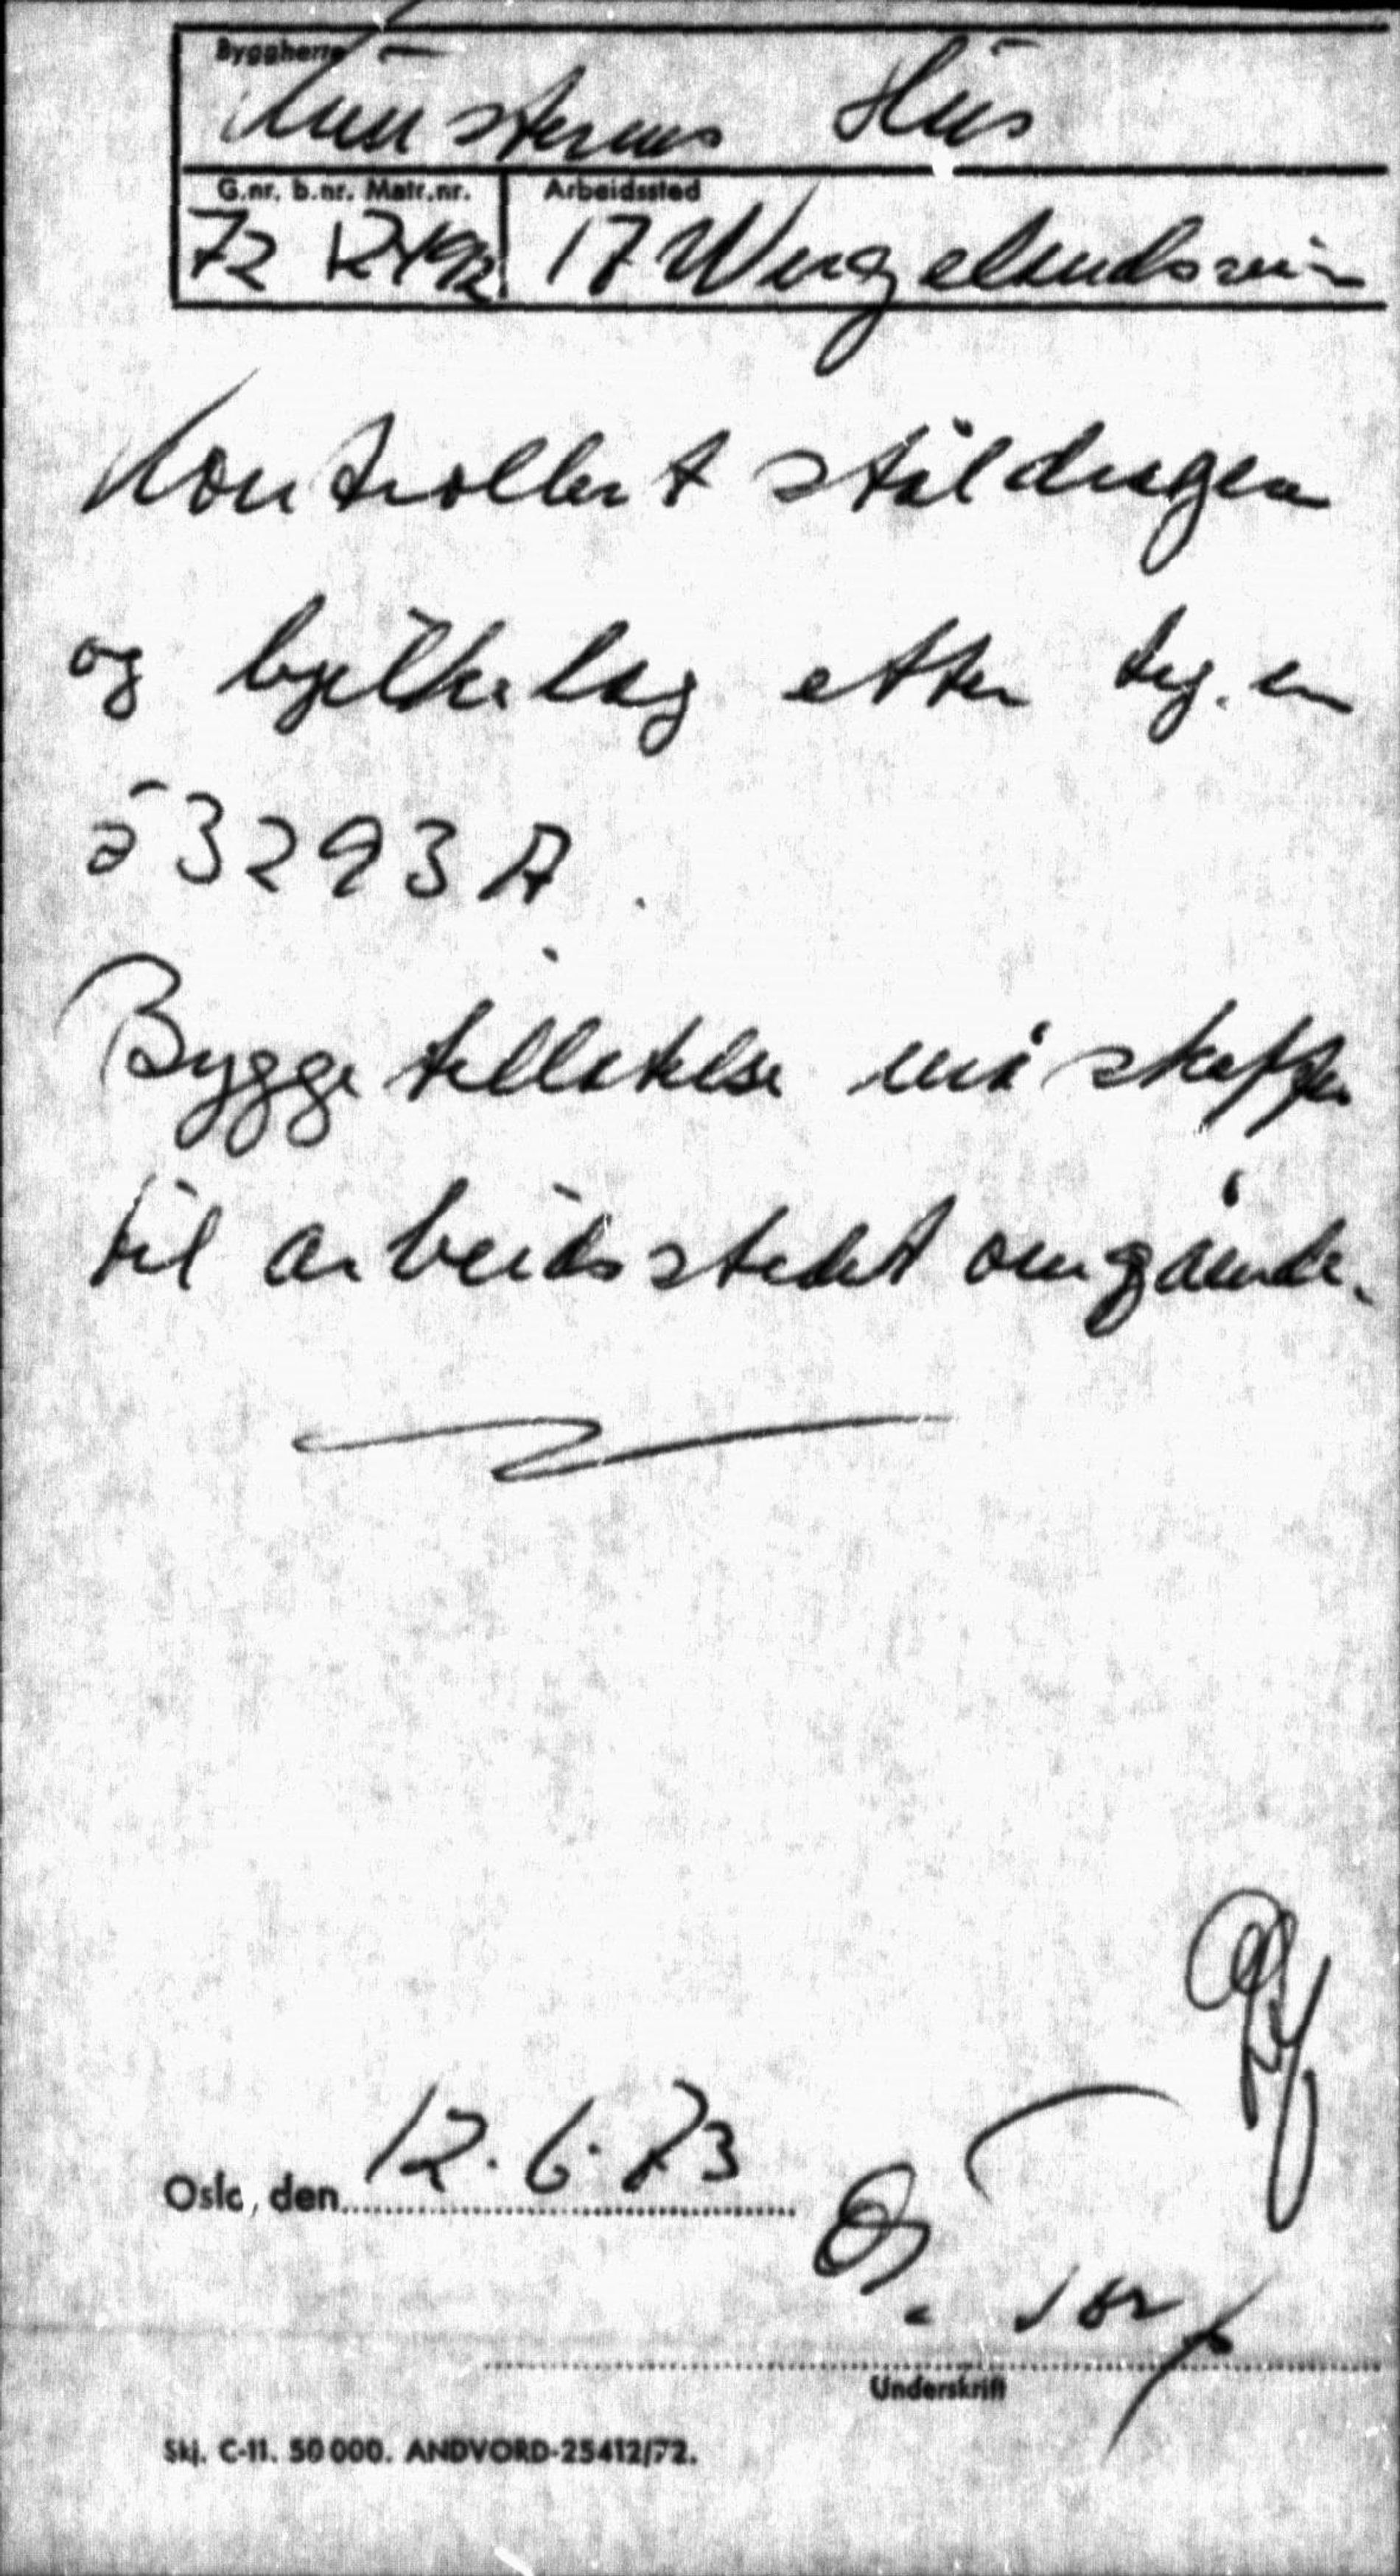 Byggherre
Kunsternes Hus
G.nr. b.nr. Matr.nr. Arbeidssted
72 17 Wergelandsvein
Kontrollert ståldrager
og bjelkelag etter teg. en
53293A.
Bygge tillatelse må skaffes
til arbeidsstedet omgående.
Oslo, den 12.6.73
Underskrift
Skj. C-11. 50 000. ANDVORD-25412/72.